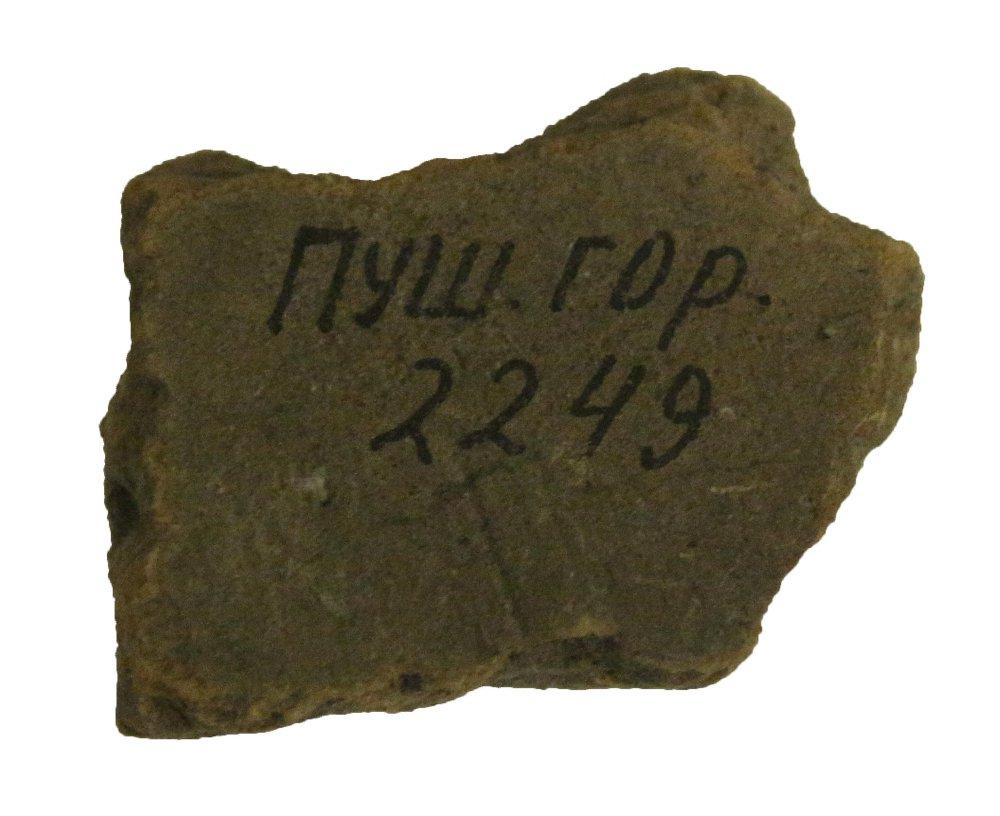 ПУШ. ГОР.
2249